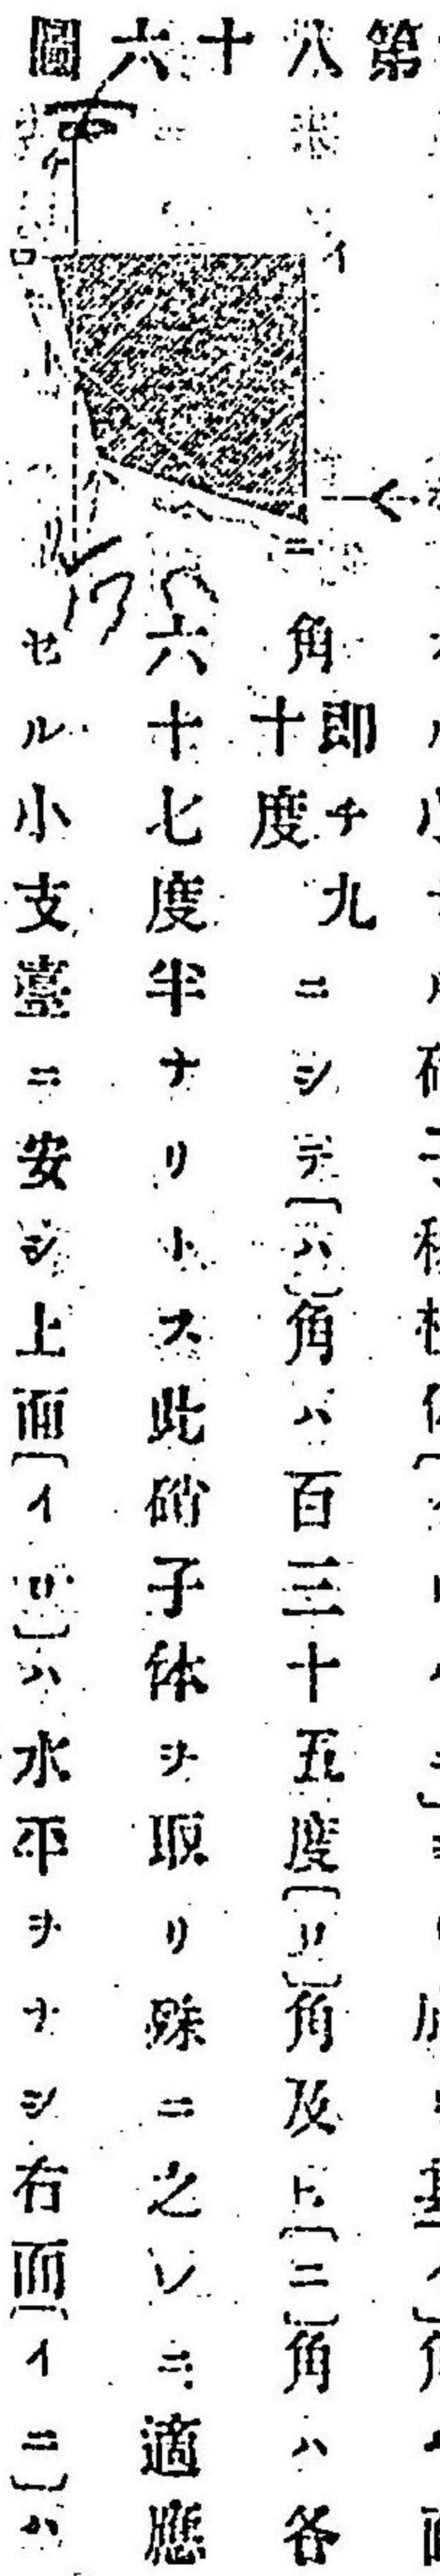 第八十六圖
イ
ロ
ハ
ニ
角即チ九十度ニシテ〔ハ〕角ハ百三十五度〔ロ〕角及ヒ〔ニ〕角ハ各
六十七度半ナリトス此硝子体ヲ取リ殊ニ之レニ適應
セル小支臺ニ安シ上面〔イロ〕ハ水平ヲナシ右面〔イニ〕ハ